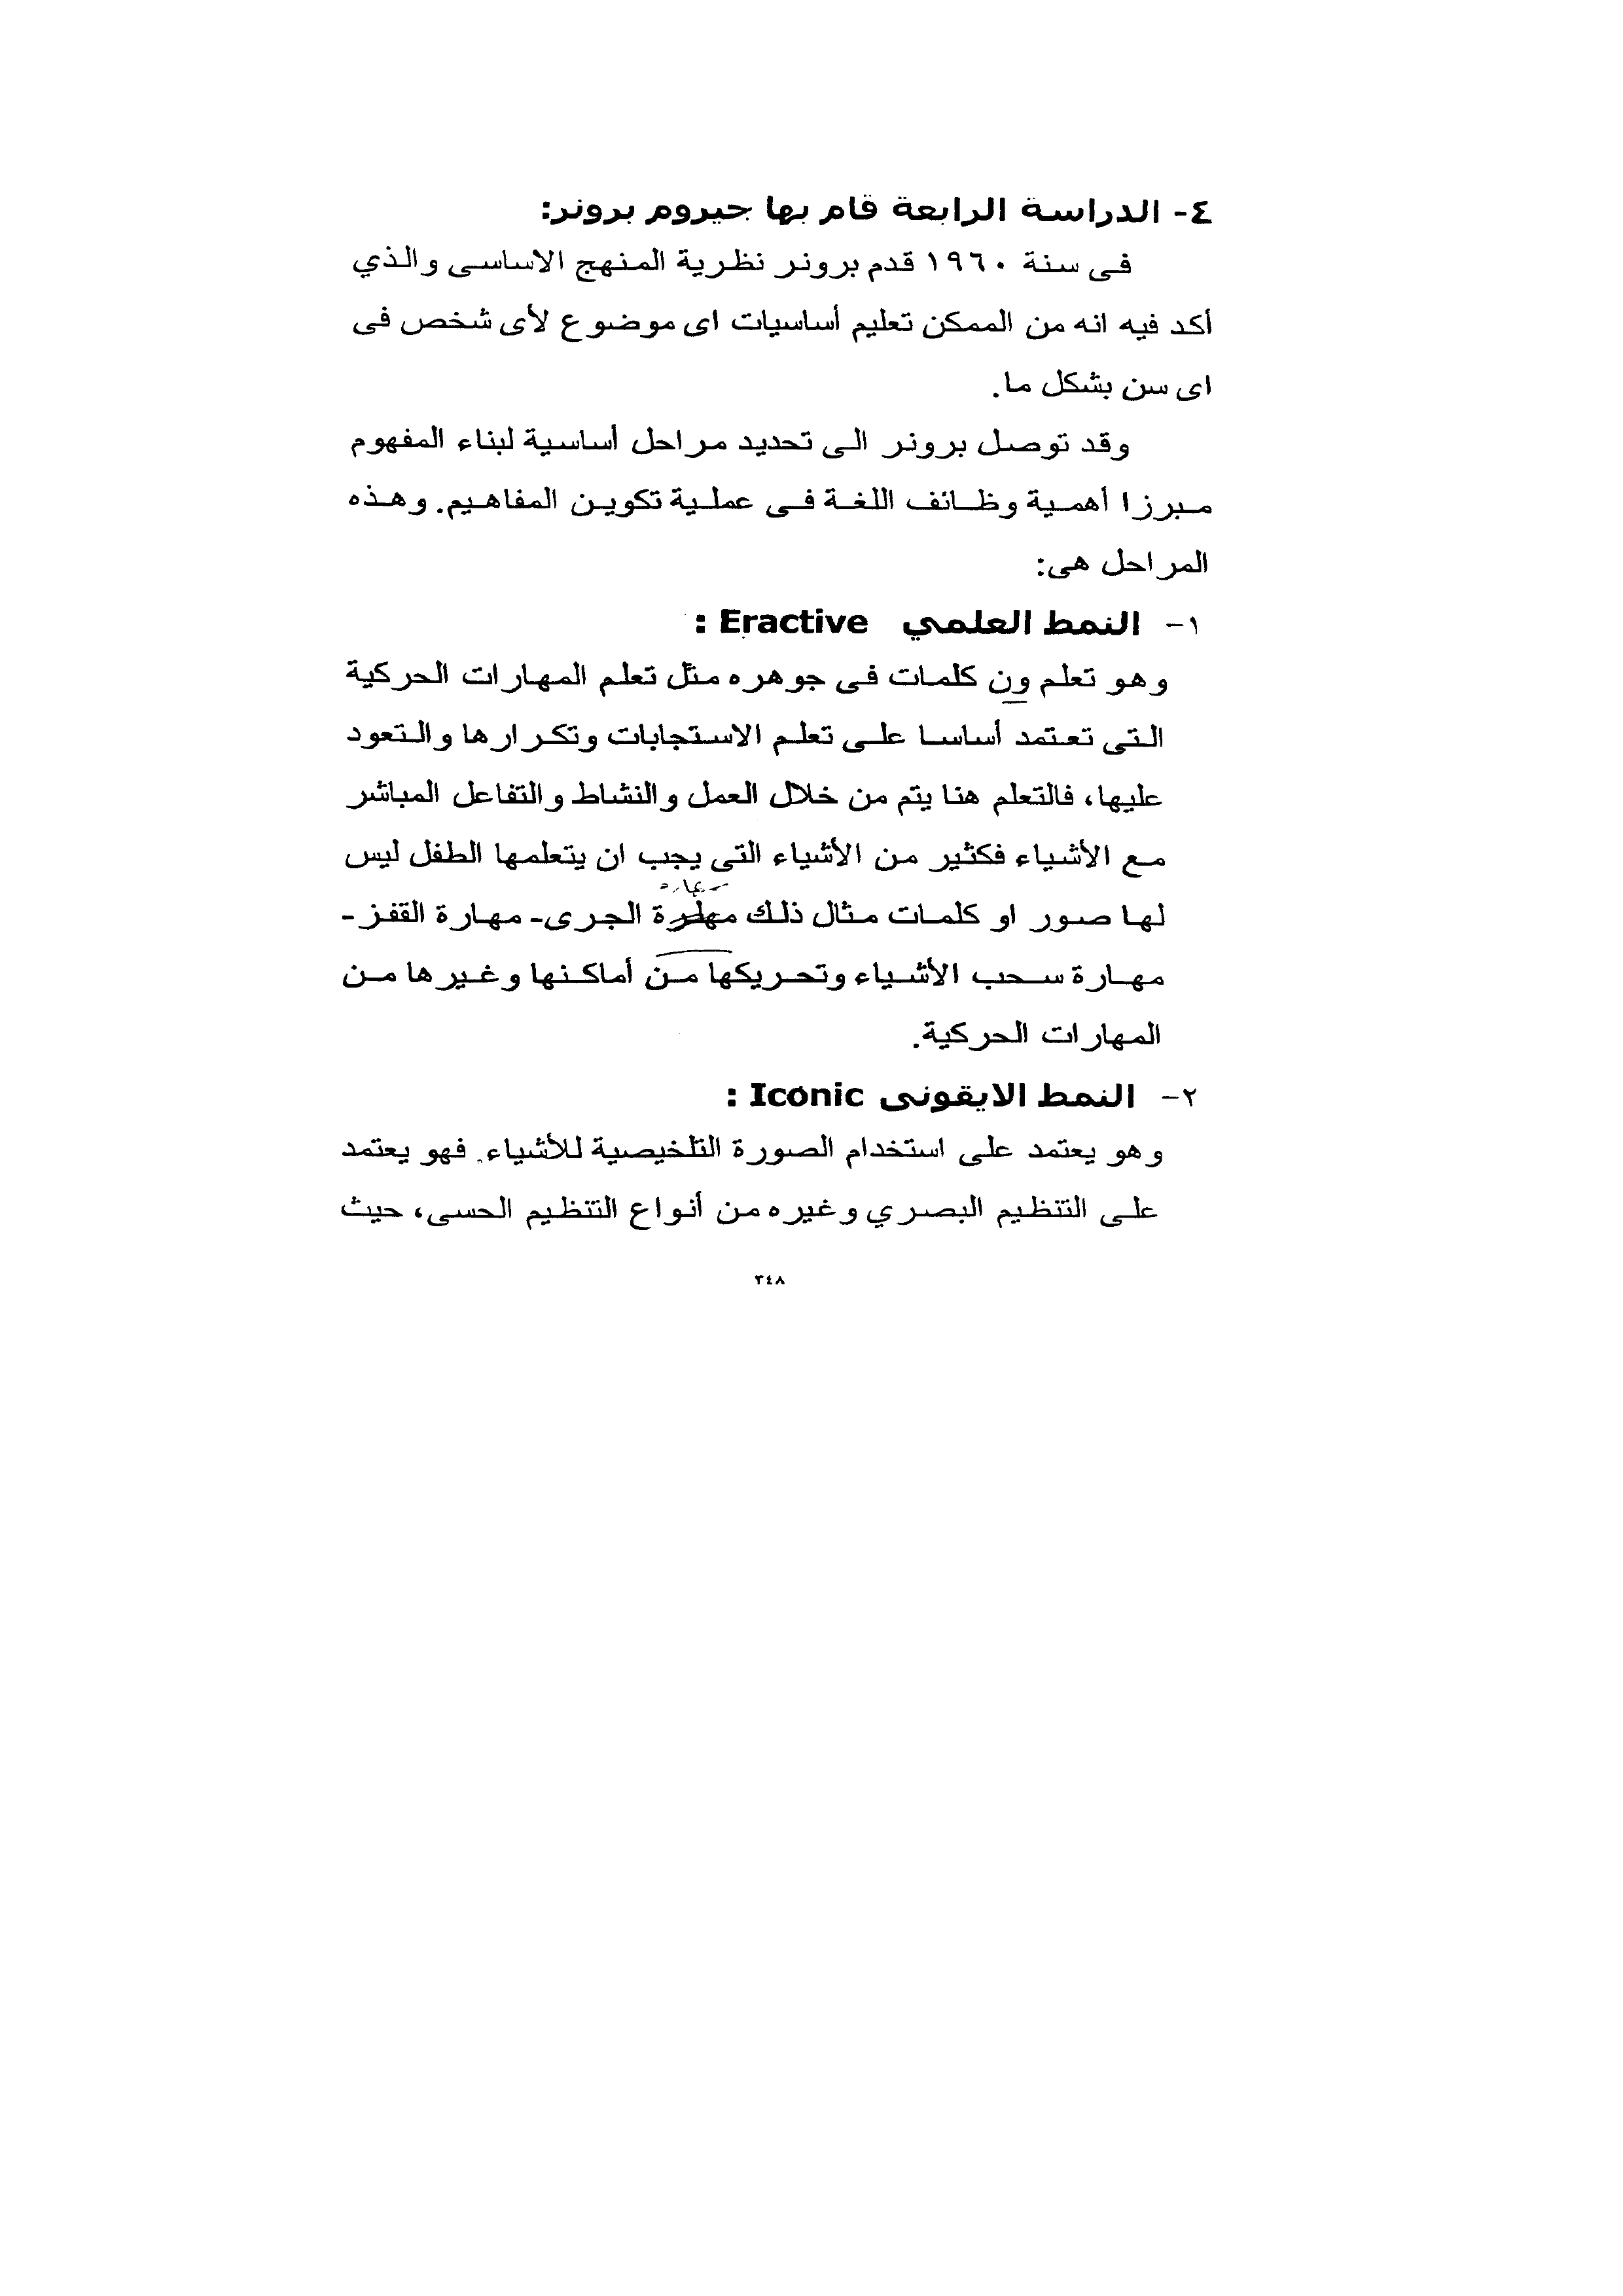 ٤- الدراسة الرابعة قام بها جيروم برونر:
فى سنة ١٩٦٠ قدم برونر نظرية المنهج الاساسى والذي
أكد فيه انه من الممكن تعليم أساسيات اى موضوع لأى شخص فى
اى سن بشكل ما.
وقد توصل برونر الى تحديد مراحل أساسية لبناء المفهوم
مبرزا أهمية وظائف اللغة فى عملية تكوين المفاهيم. وهذه
المراحل هى:
١- النمط العلمي Eractive :
وهو تعلم ون كلمات فى جوهره مثل تعلم المهارات الحركية
التى تعتمد أساسا على تعلم الاستجابات وتكرارها والتعود
عليها، فالتعلم هنا يتم من خلال العمل والنشاط والتفاعل المباشر
مع الأشياء فكثير من الأشياء التى يجب ان يتعلمها الطفل ليس
مهاره
لها صور او كلمات مثال ذلك مهارة الجرى- مهارة القفز-
مهارة سحب الأشياء وتحريكها من أماكنها وغيرها من
المهارات الحركية.
٢- النمط الايقونى Iconic :
وهو يعتمد على استخدام الصورة التلخيصية للأشياء. فهو يعتمد
على التنظيم البصري وغيره من أنواع التنظيم الحسى، حيث
٣٤٨